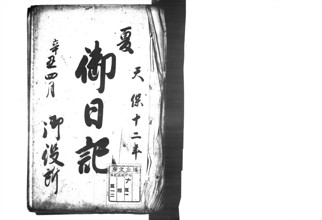 夏 天保十二年
御日記
辛丑四月 御役所